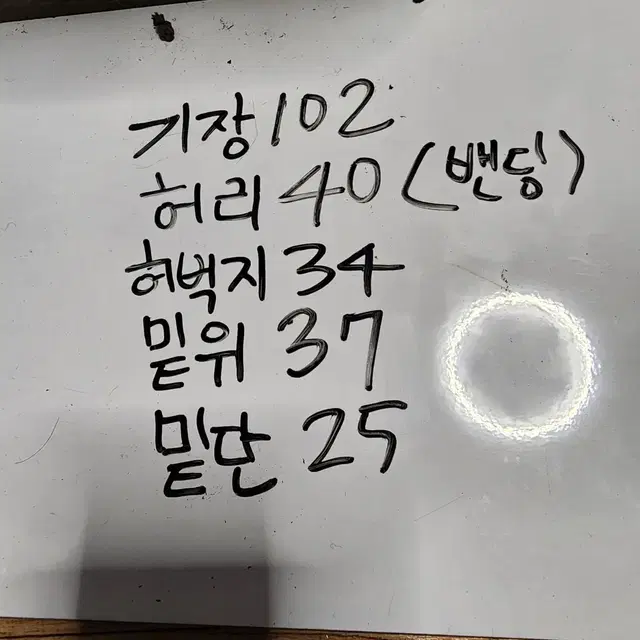 기장 102
허리 40 (밴딩)
허벅지 34
밑위 37
밑단 25